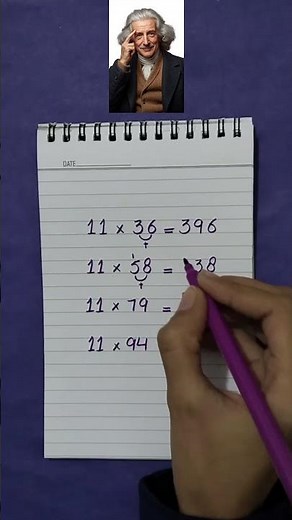 DATE
11 × 36 = 396
+
1
11 × 58 = 38
+
11 × 79 =
11 × 94